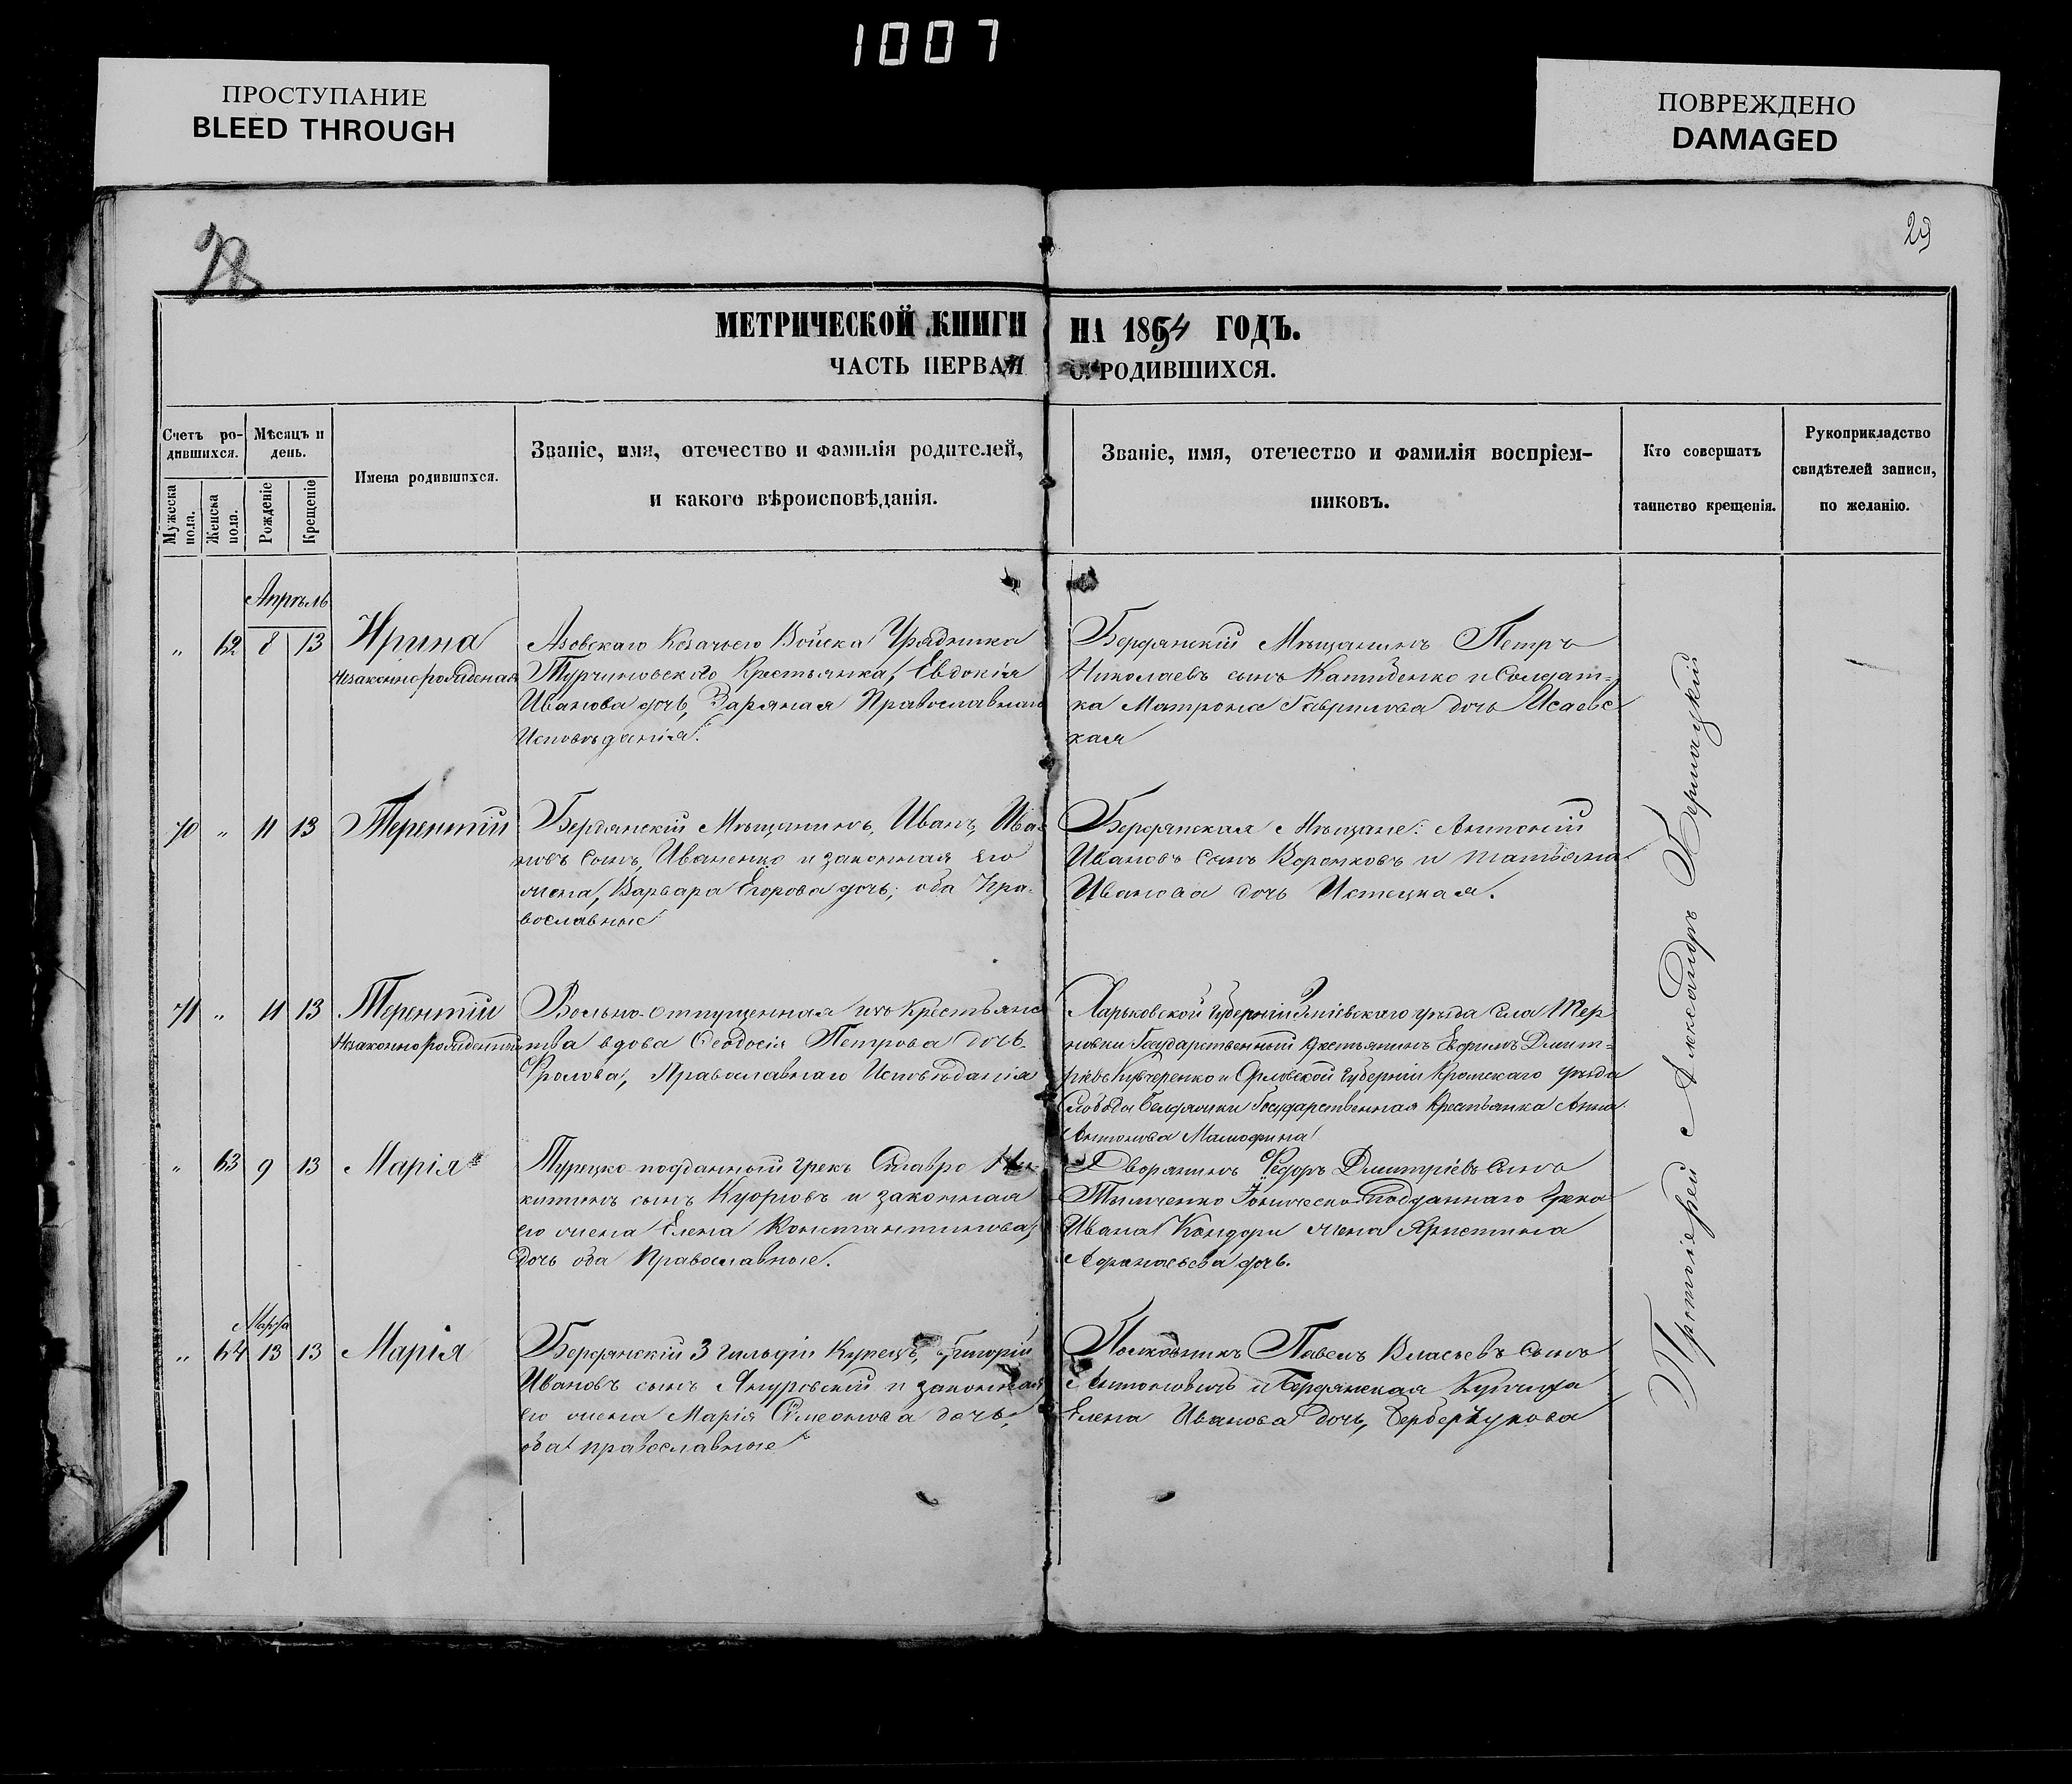 1007
ПРОСТУПАНИЕ
BLEED THROUGH
ПОВРЕЖДЕНО
DAMAGED
28
29
МЕТРИЧЕСКОЙ КНИГИ НА 1854 ГОДЪ.
ЧАСТЬ ПЕРВАЯ О РОДИВШИХСЯ.
Счетъ ро-
дившихся.
Мужеска пола.
Женска пола.
Мѣсяцъ и
день.
Рожденіе
Крещеніе
Имена родившихся.
Званіе, имя, отечество и фамилія родителей,
и какого вѣроисповѣданія.
Званіе, имя, отечество и фамилія воспріем-
никовъ.
Кто совершатъ
таинство крещенія.
Рукоприкладство
свидѣтелей записи,
по желанію.
Апрѣль
„ 62 8 13 Ирина
незаконнорожденая
Азовскаго Козачьего Войска Урядника
Турчиновского Крестьянка, Евдокія
Иванова дочь, Православнаго
Исповѣданія.
Бердянскій Мѣщанинъ Петръ
Николаевъ сынъ и Солдат-
ка Матрона Гаврилова дочь Исаевс
кая
70 „ 11 13 Терентій
Бердянскій Мѣщанинъ, Иванъ Ива-
новъ сынъ, Иваненко и законная его
жена, Варвара Егорова дочь, оба Пра-
вославные
Бердянская Мѣщане: Антоній
Ивановъ сынъ Воронковъ и Татьяна
Иванова дочь Истецкая.
71 „ 11 13 Терентій
Незаконнорожденный
Вольно-отпущенная изъ крестьянс
тва вдова Ѳеодосія Петрова дочь
Фролова, Православнаго Исповѣданія
Харьковской Губерніи Зміевскаго уѣзда села Тер
новки Государственный крестьянинъ Евфимъ Дмит-
ріевъ Кучеренко и Орловской Губерніи Кромскаго уѣзда
Слободы Государственная Крестьянка Анна
Антонова
„ 63 9 13 Марія
Турецко-подданный грекъ Ставро Ни-
китинъ сынъ и законная
его жена Елена Константинова,
дочь оба Православные.
Дворянинъ Ѳедоръ Дмитріевъ сынъ
Тимченко Іоническо-подданнаго Грека
Ивана Кондори жена Христина
Афанасьева дочь.
Марта
„ 64 13 13 Марія
Бердянскій 3 гильдіи Купецъ, Григорій
Ивановъ сынъ и законная
его жена Марія Симеонова дочь,
оба православные
Полковникъ Павелъ Власьевъ сынъ
Антоновичъ и Бердянская Купчиха
Елена Иванова дочь,
Протоіерей Александръ